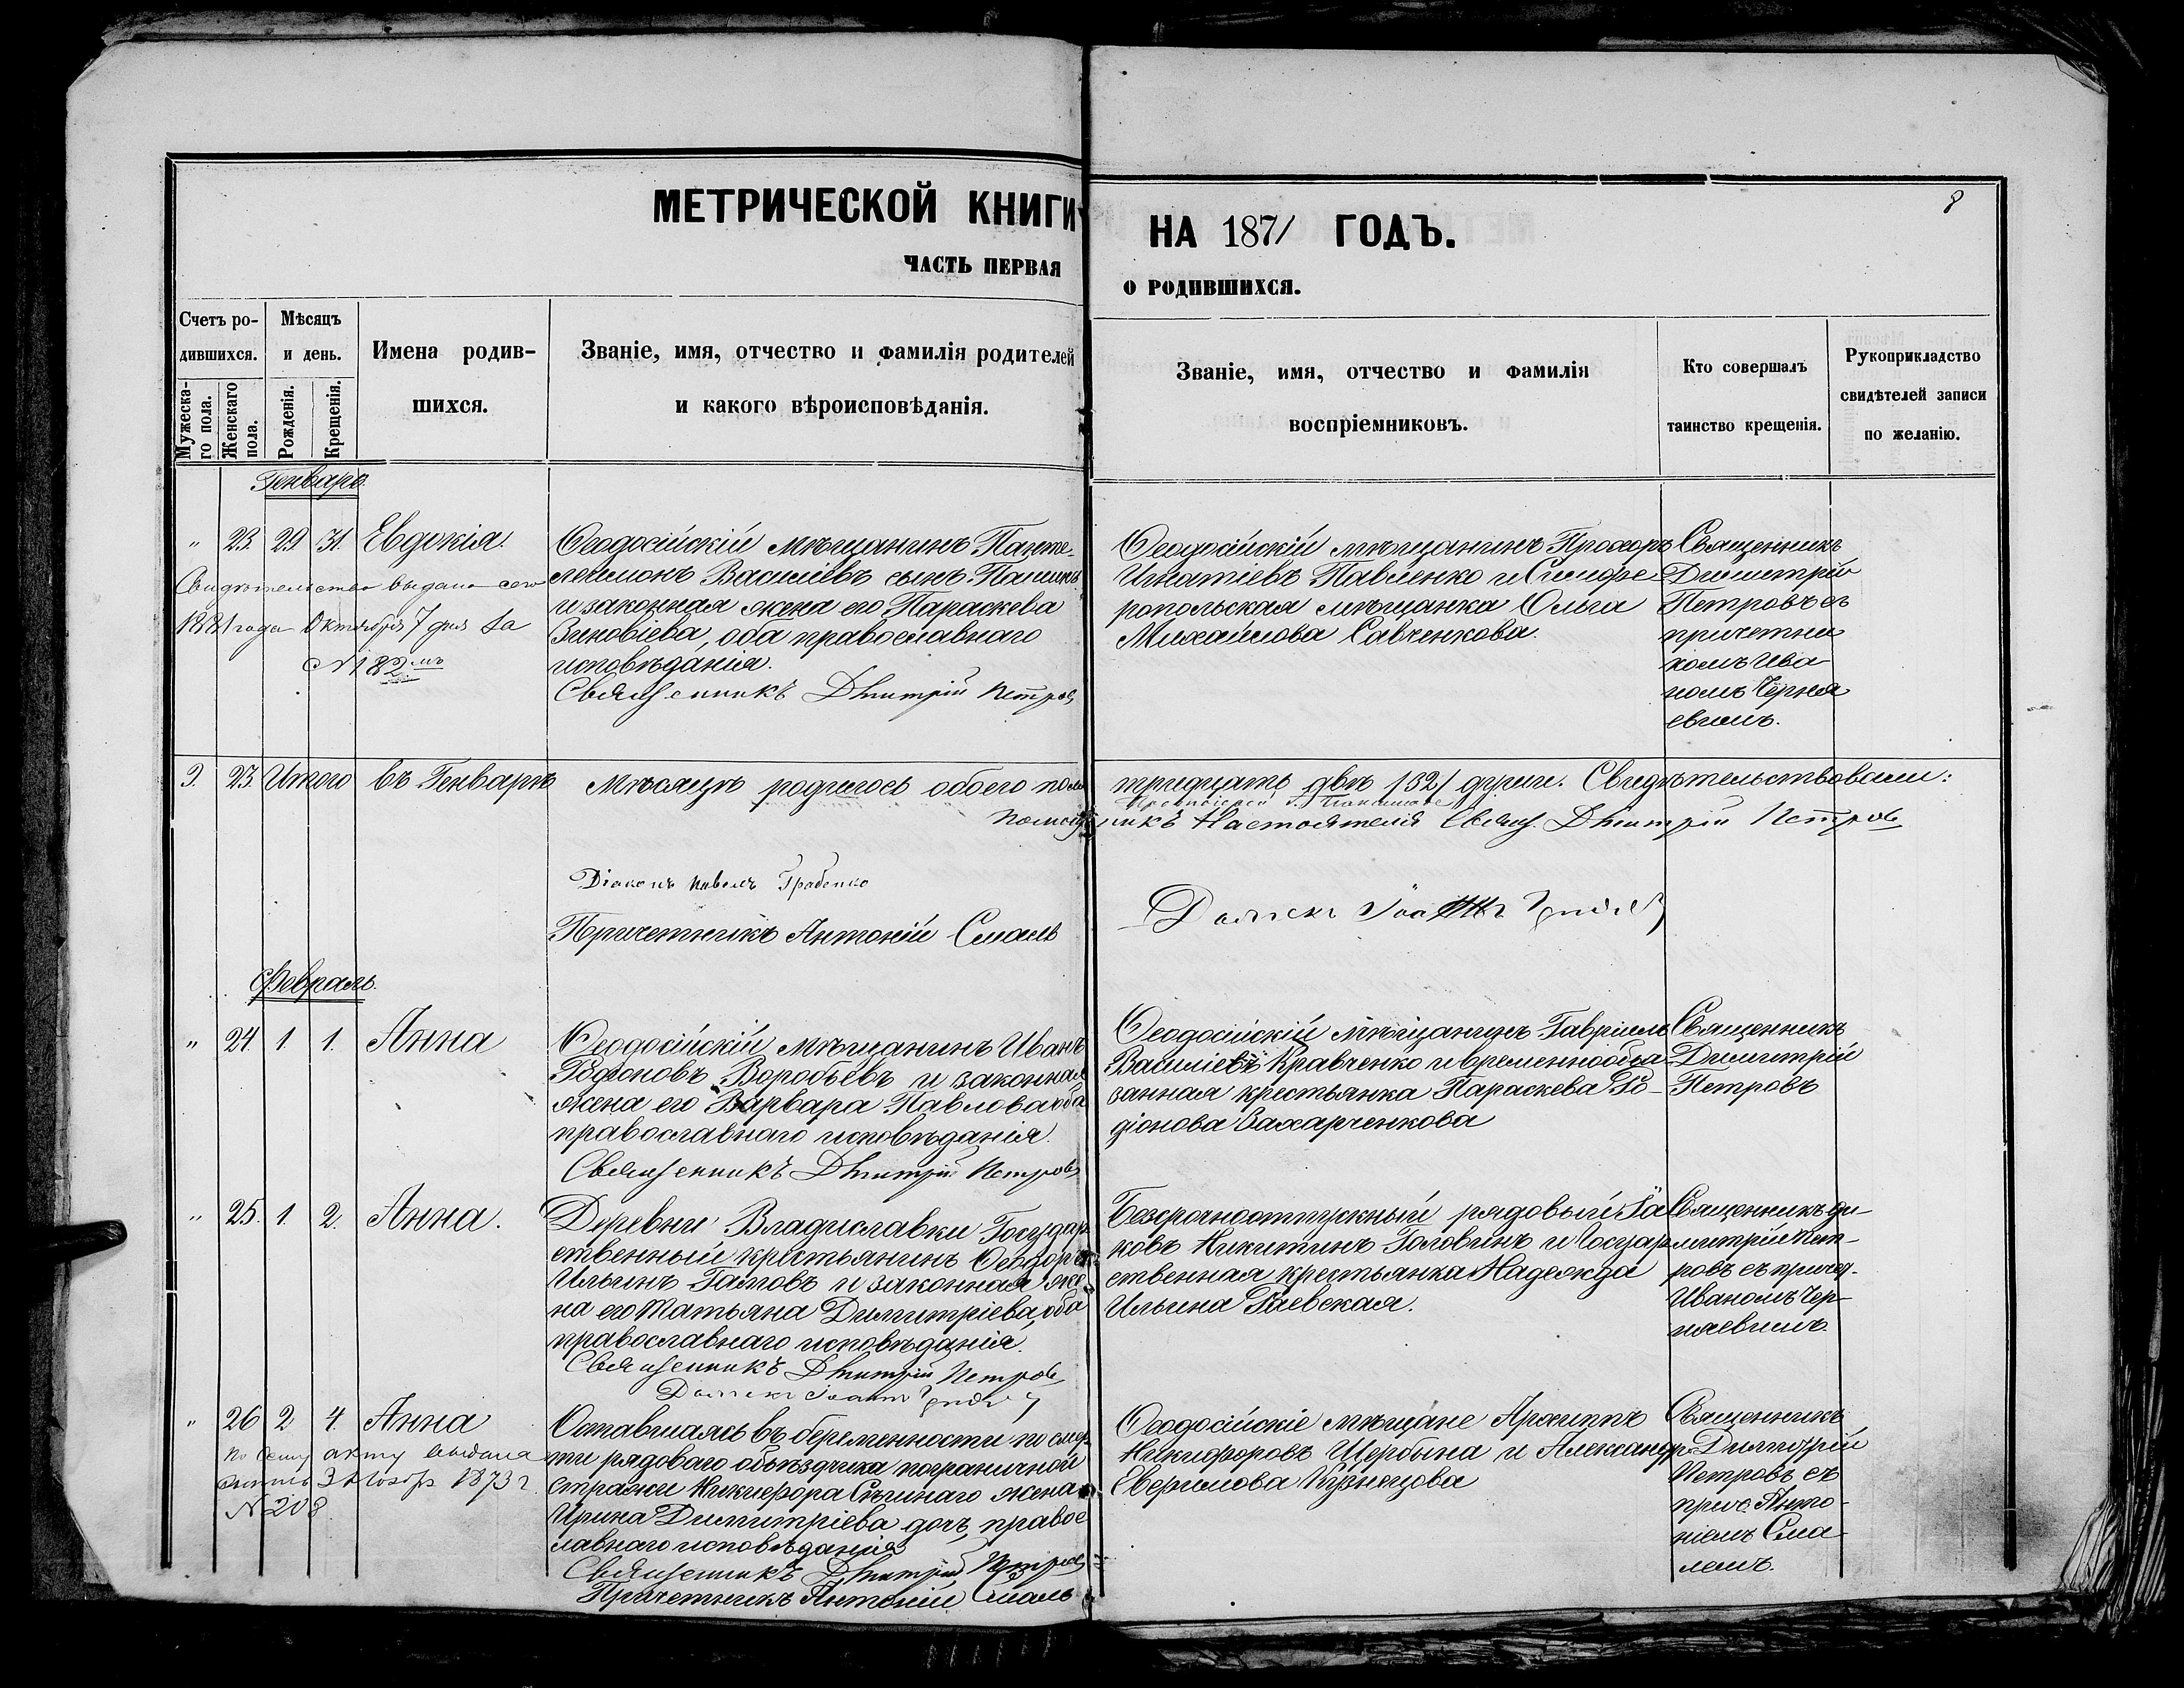 8
МЕТРИЧЕСКОЙ КНИГИ НА 1871 ГОДЪ.
ЧАСТЬ ПЕРВАЯ О РОДИВШИХСЯ.
Счетъ ро-
дившихся.
Мужеска-
го пола.
Женскаго
пола.
Мѣсяцъ
и день.
Рожденія.
Крещенія.
Имена родив-
шихся.
Званіе, имя, отчество и фамилія родителей
и какого вѣроисповѣданія.
Званіе, имя, отчество и фамилія
воспріемниковъ.
Кто совершалъ
таинство крещенія.
Рукоприкладство
свидѣтелей записи
по желанію.
Генварь.
" 23. 29 31. Евдокія.
Свидѣтельство выдано сего
1881 года Октября 7 дня за
№ 182 мъ
Ѳеодосійскій мѣщанинъ Панте-
леимонъ Василіевъ сынъ
и законная жена его Параскева
Зиновіева, оба православнаго
исповѣданія.
Священникъ Дмитрій Петровъ
Ѳеодосійскій мѣщанинъ Прохоръ
Игнатіевъ Павленко и Симфе
ропольская мѣщанка Ольга
Михайлова Савченкова.
Священникъ
Димитрій
Петровъ съ
причетни
комъ Ива
номъ Черня
евымъ.
9. 23. Итого въ Генварѣ мѣсяцѣ родилось обоего пола тридцать двѣ /32/ души. Свидѣтельствовали:
Помощникъ Настоятеля Свящ. Дмитрій Петровъ
Діаконъ Павелъ Грабенко
Причетникъ Антоній Смаль
Февраль.
" 24. 1 1. Анна
Ѳеодосійскій мѣщанинъ Иванъ
Родіоновъ Воробьевъ и законная
жена его Варвара Павлова оба
православнаго исповѣданія.
Священникъ Дмитрій Петровъ
Ѳеодосійскій мѣщанинъ Гавріилъ
Василіевъ Кравченко и временнообя
занная крестьянка Параскева Ро-
діонова Захарченкова
Священникъ
Димитрій
Петровъ
" 25. 1. 2. Анна.
Деревни Владиславки Государ
ственный крестьянинъ Ѳеодоръ
Ильинъ и законная же
на его Татьяна Димитріева, оба
православнаго исповѣданія.
Священникъ Дмитрій Петровъ
Безсрочноотпускный рядовый Іа
ковъ Никитинъ Головинъ и Государ
ственная крестьянка Надежда
Ильина Гаевская.
Священникъ Ди-
митрій Пет-
ровъ съ причет.
Иваномъ Чер-
няевымъ.
" 26 2 4. Анна
По сему акту выдана
3 Ноябр 1873 г.
№ 208
Оставшаяся въ беременности по смер
ти рядоваго объѣздчика пограничной
стражи Никифора жена
Ирина Димитріева дочь, правос
лавнаго исповѣданія
Священникъ Дмитрій Петровъ
Причетникъ Антоній Смаль
Ѳеодосійскіе мѣщане Архиппъ
Никифоровъ Щербына и Александр
Кузнецова
Священникъ
Димитрій
Петровъ съ
прич. Анто-
ніемъ Сма
лемъ.